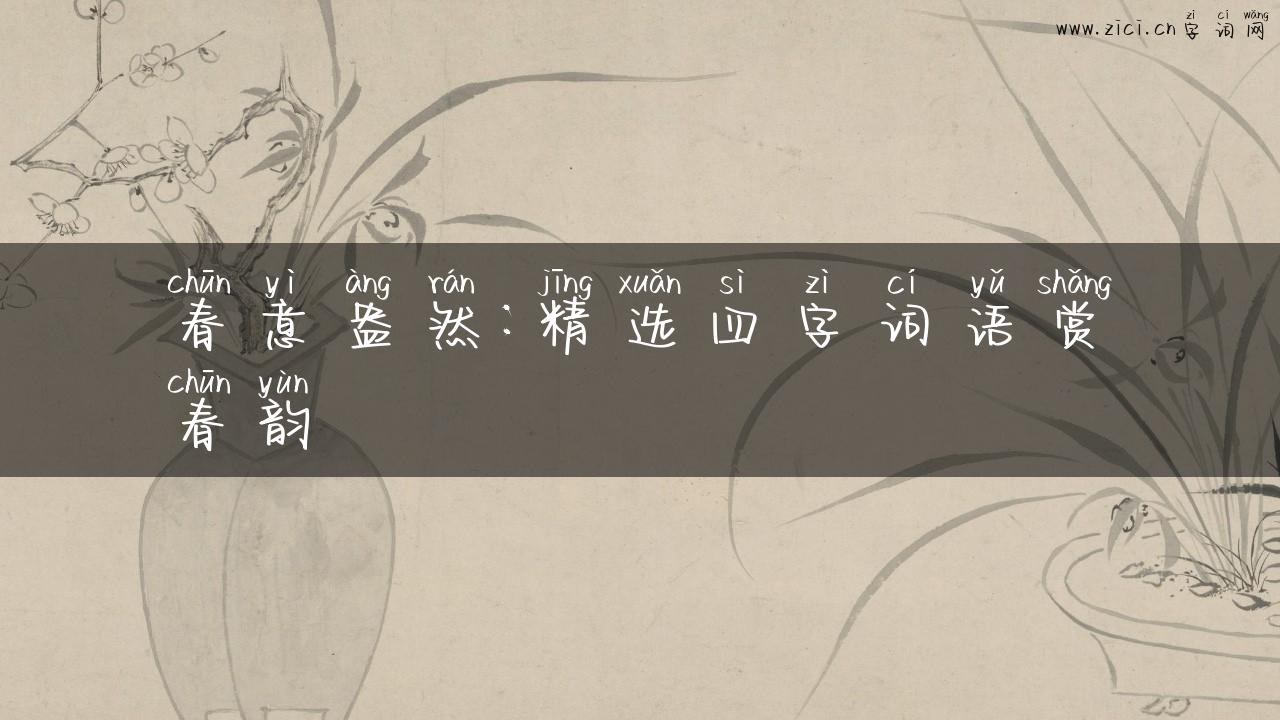 zì cí wǎng
www.zici.cn 字词网
chūn yì àng rán jīng xuǎn sì zì cí yǔ shǎng
春意盎然：精选四字词语赏
chūn yùn
春韵